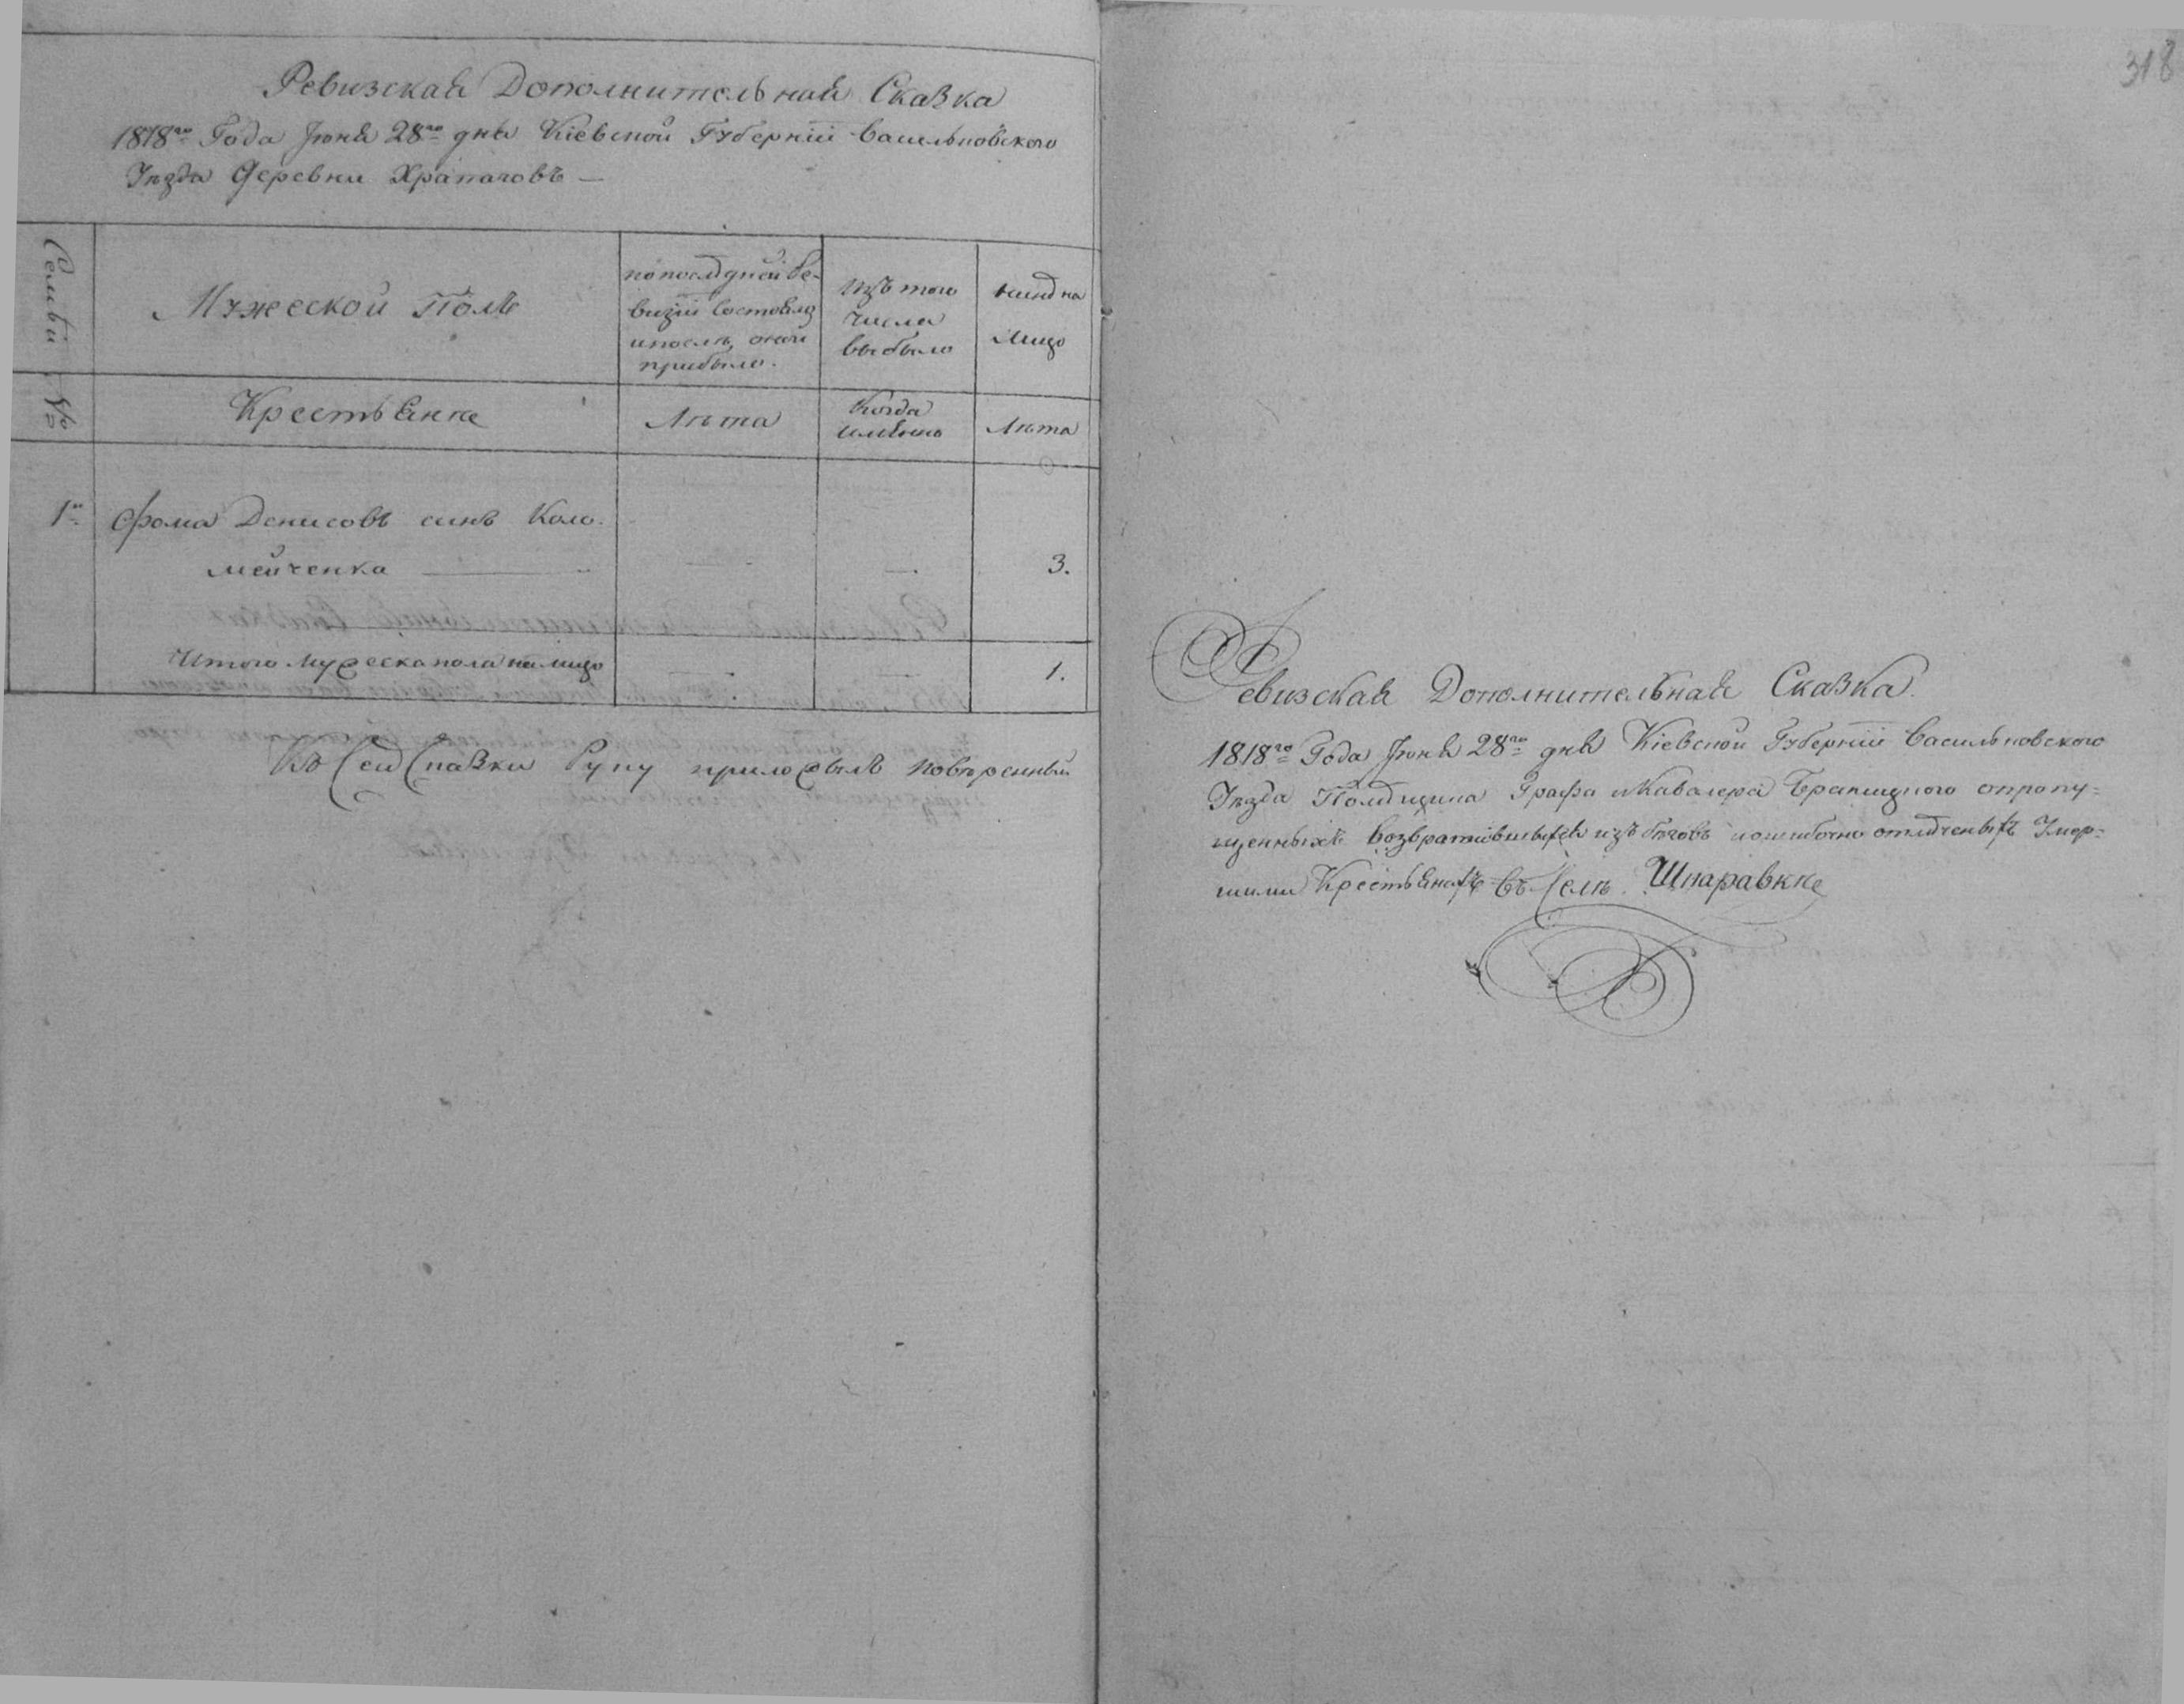 Ревизская Дополнительная Сказка
1818го Года Июня 28го дня Кіевской Губерніи Васильковского
Уѣзда Деревни Храпачовъ —
Семьи №
Мужеской Полъ
по последней Ре-
визіи Состояло
и послѣ оной
прибыло.
Изъ того
Числа
выбыло
нинѣ на
лицо
Крестьяне
Лѣта
Когда
имянно
Лѣта
1й Фома Денисовъ синъ Коло-
мейченка — 3.
Итого Мужеска пола на лицо 1.
Къ Сей Сказки Руку приложилъ Повѣренный
318
Ревизская Дополнительная Сказка.
1818го Года Июня 28го дня Кіевской Губерніи Васильковского
Уѣзда Помѣщика Графа и Кавалера Браницкого о пропу-
щенныхъ Возвратившихся изъ бѣговъ и ошибочно отмѣченыхъ Умер-
шими Крестьянахъ въ Селѣ Шкаравке